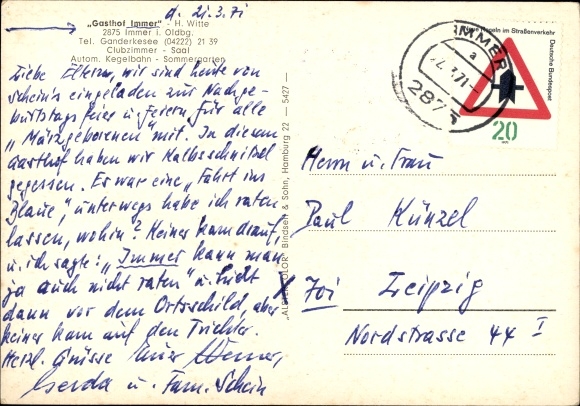 d. 21.3.71
„Gasthof Immer" - H. Witte
2875 Immer i. Oldbg.
Tel. Ganderkesee (04222) 21 39
Clubzimmer - Saal
Autom. Kegelbahn - Sommergarten
Liebe Eltern, wir sind heute von
Scheins eingeladen zur Nachge-
burtstagsfeier u. feiern für alle
„Märzgeborenen" mit. In diesem
Gasthof haben wir Kalbsschnitzel
gegessen. Es war eine „Fahrt ins
Blaue", unterwegs habe ich raten
lassen, wohin? Keiner kam drauf,
u. ich sagte: „Immer kann man
ja auch nicht raten" u. hielt
dann vor dem Ortsschild, aber
keiner kam auf den Trichter.
Herzl. Grüsse Euer Werner,
Gerda u. Fam. Schein
Bindseil & Sohn, Hamburg 22 — 5427 —
Neue Regeln im Straßenverkehr
Deutsche Bundespost
20
IMMER
a
2875
Herrn u. Frau
Paul Künzel
X 701 Leipzig
Nordstrasse 44 I